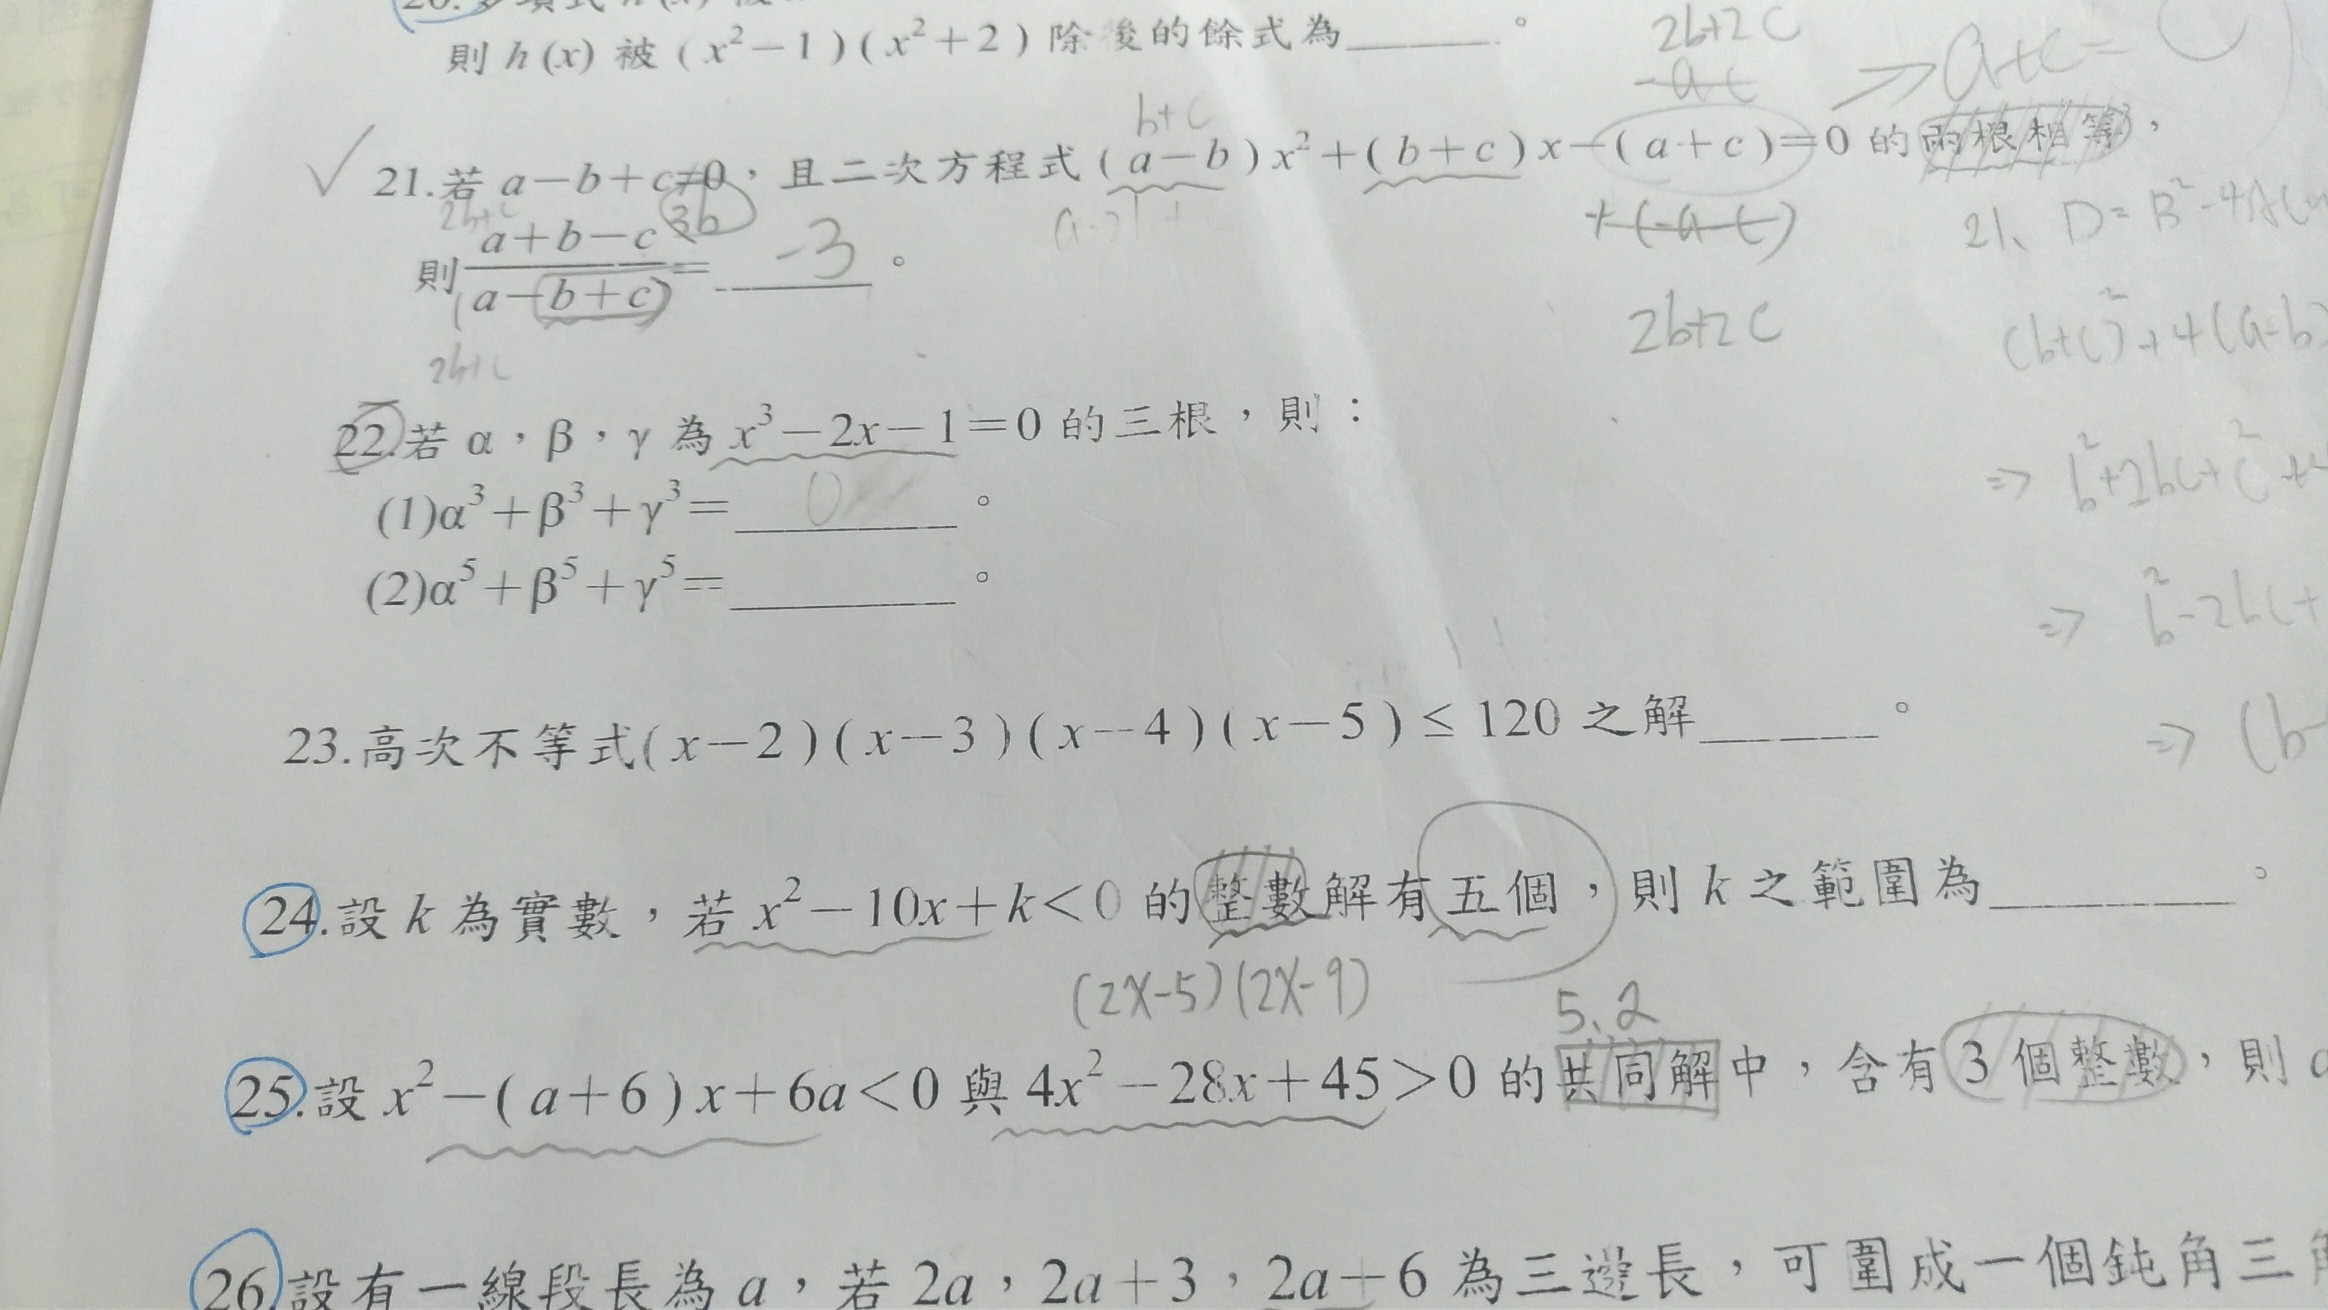 則 h(x) 被 (x²－1)(x²＋2) 除後的餘式為______。
2b+2c
-a-c
=> a+c=
b+c
✓ 21.若 a－b＋c≠0，且二次方程式 (a－b)x²＋(b＋c)x－(a＋c)＝0 的兩根相等，
2b+c
3b
+(-a-c)
21、D=B²-4A
則 (a＋b－c)/(a－b＋c)＝ -3 。
2b+c
2b+2c
(b+c)²+4(a-b)
22.若 α，β，γ 為 x³－2x－1＝0 的三根，則：
=> b²+2bc+c²+
(1)α³＋β³＋γ³＝ 0 。
(2)α⁵＋β⁵＋γ⁵＝______。
=> b²-2bc+
23.高次不等式(x－2)(x－3)(x－4)(x－5)≤120 之解______。
=> (b-
24.設 k 為實數，若 x²－10x＋k＜0 的整數解有五個，則 k 之範圍為______。
(2x-5)(2x-9)
5、2
25.設 x²－(a＋6)x＋6a＜0 與 4x²－28x＋45＞0 的共同解中，含有 3 個整數，則 a
26.設有一線段長為 a，若 2a，2a＋3，2a＋6 為三邊長，可圍成一個鈍角三角